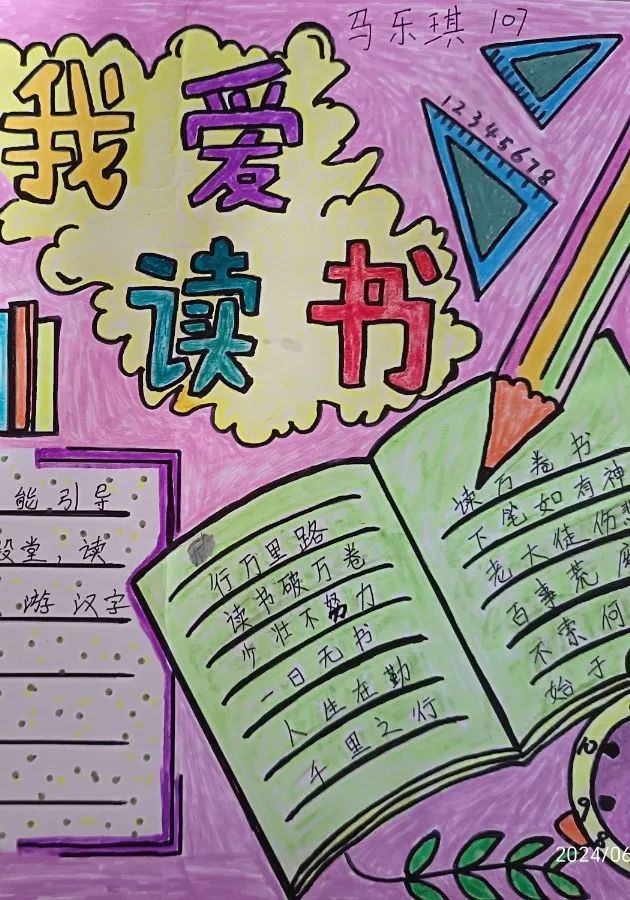 马乐琪 107
我爱
读书
12345678
能引导
殿堂，读
游汉字
行万里路
读书破万卷
少壮不努力
一日无书
人生在勤
千里之行
读万卷书
下笔如有神
老大徒伤悲
百事荒废
不索何
始于
10
9
8
2024/06